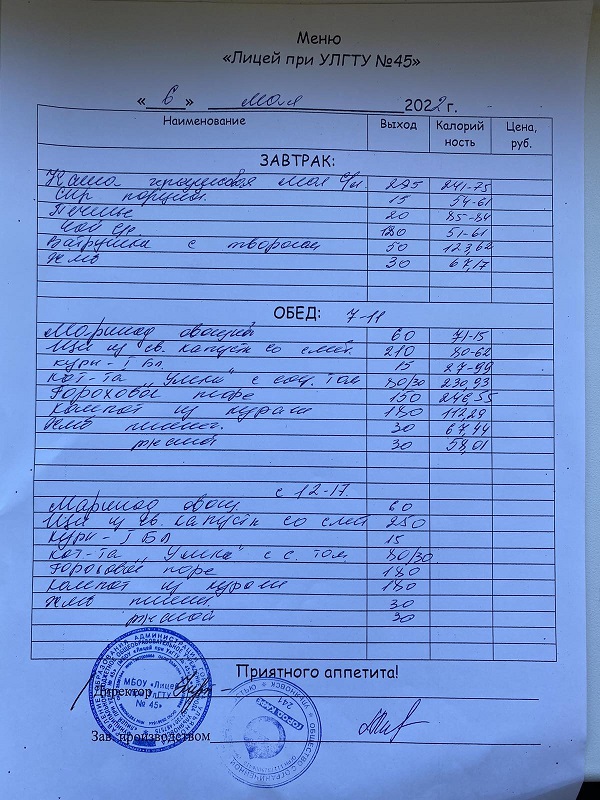 Меню
«Лицей при УЛГТУ №45»
« 6 » мая 2022 г.
Наименование Выход Калорийность Цена, руб.
ЗАВТРАК:
Каша мол 275 241-75
Сыр порцион. 15 54-61
Печенье 20 85-84
Чай 180 51-61
Ватрушка с творогом 50 123,62
Хлеб 30 67,17
ОБЕД: 7-11
Маринад овощной 60 71-15
Щи из св. капусты со смет. 210 80-62
куры-I Бл 15 27-99
кот-та „Умка" с соус. том 80/30 230,93
Гороховое пюре 150 246,55
Компот из кураги 180 112,29
Хлеб пшен. 30 67,44
ржаной 30 58,01
с 12-17.
Маринад овощ. 60
Щи из св. капусты со смет 250
куры-I Бл 15
кот-та „Умка" с с. том. 80/30
Гороховое пюре 180
Компот из кураги 180
Хлеб пшен. 30
ржаной 30
Приятного аппетита!
Директор
МБОУ «Лицей при УлГТУ № 45»
Зав. производством